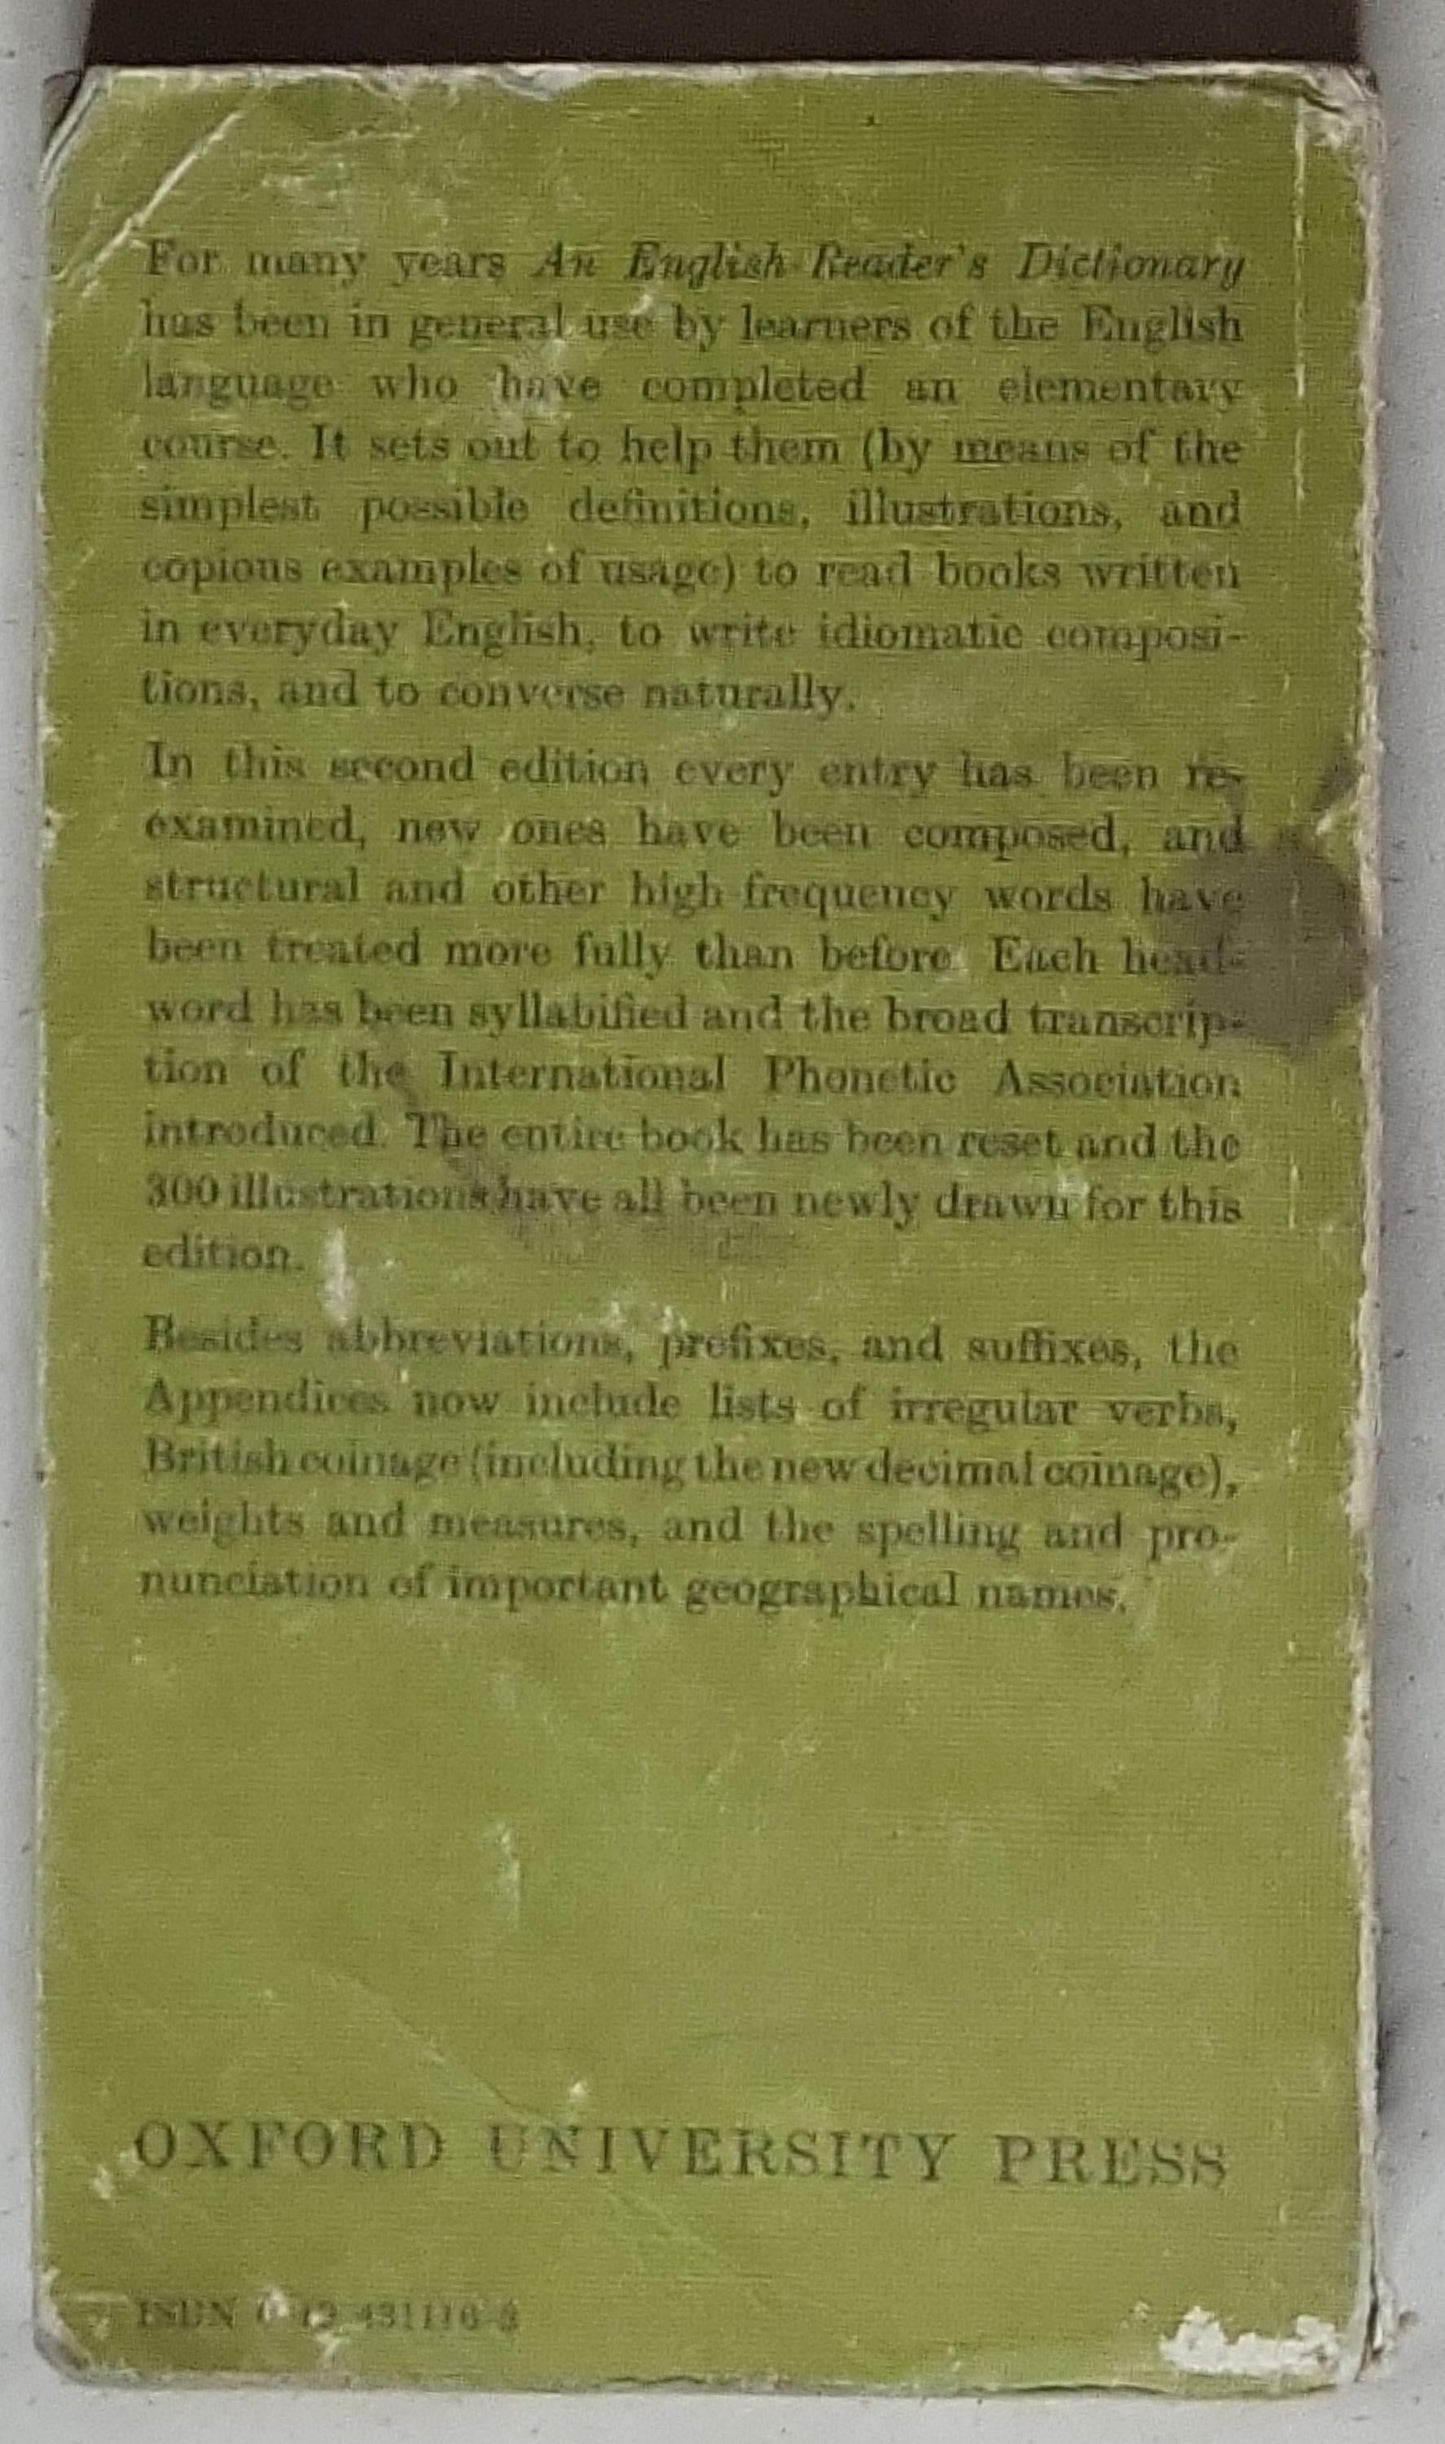 For many years An English Reader's Dictionary
has been in general use by learners of the English
language who have completed an elementary
course. It sets out to help them (by means of the
simplest possible definitions, illustrations, and
copious examples of usage) to read books written
in everyday English, to write idiomatic composi-
tions, and to converse naturally.
In this second edition every entry has been re-
examined, new ones have been composed, and
structural and other high frequency words have
been treated more fully than before. Each head-
word has been syllabified and the broad transcrip-
tion of the International Phonetic Association
introduced. The entire book has been reset and the
300 illustrations have all been newly drawn for this
edition.
Besides abbreviations, prefixes, and suffixes, the
Appendices now include lists of irregular verbs,
British coinage (including the new decimal coinage),
weights and measures, and the spelling and pro-
nunciation of important geographical names.
OXFORD UNIVERSITY PRESS
ISBN 0 19 431116 3